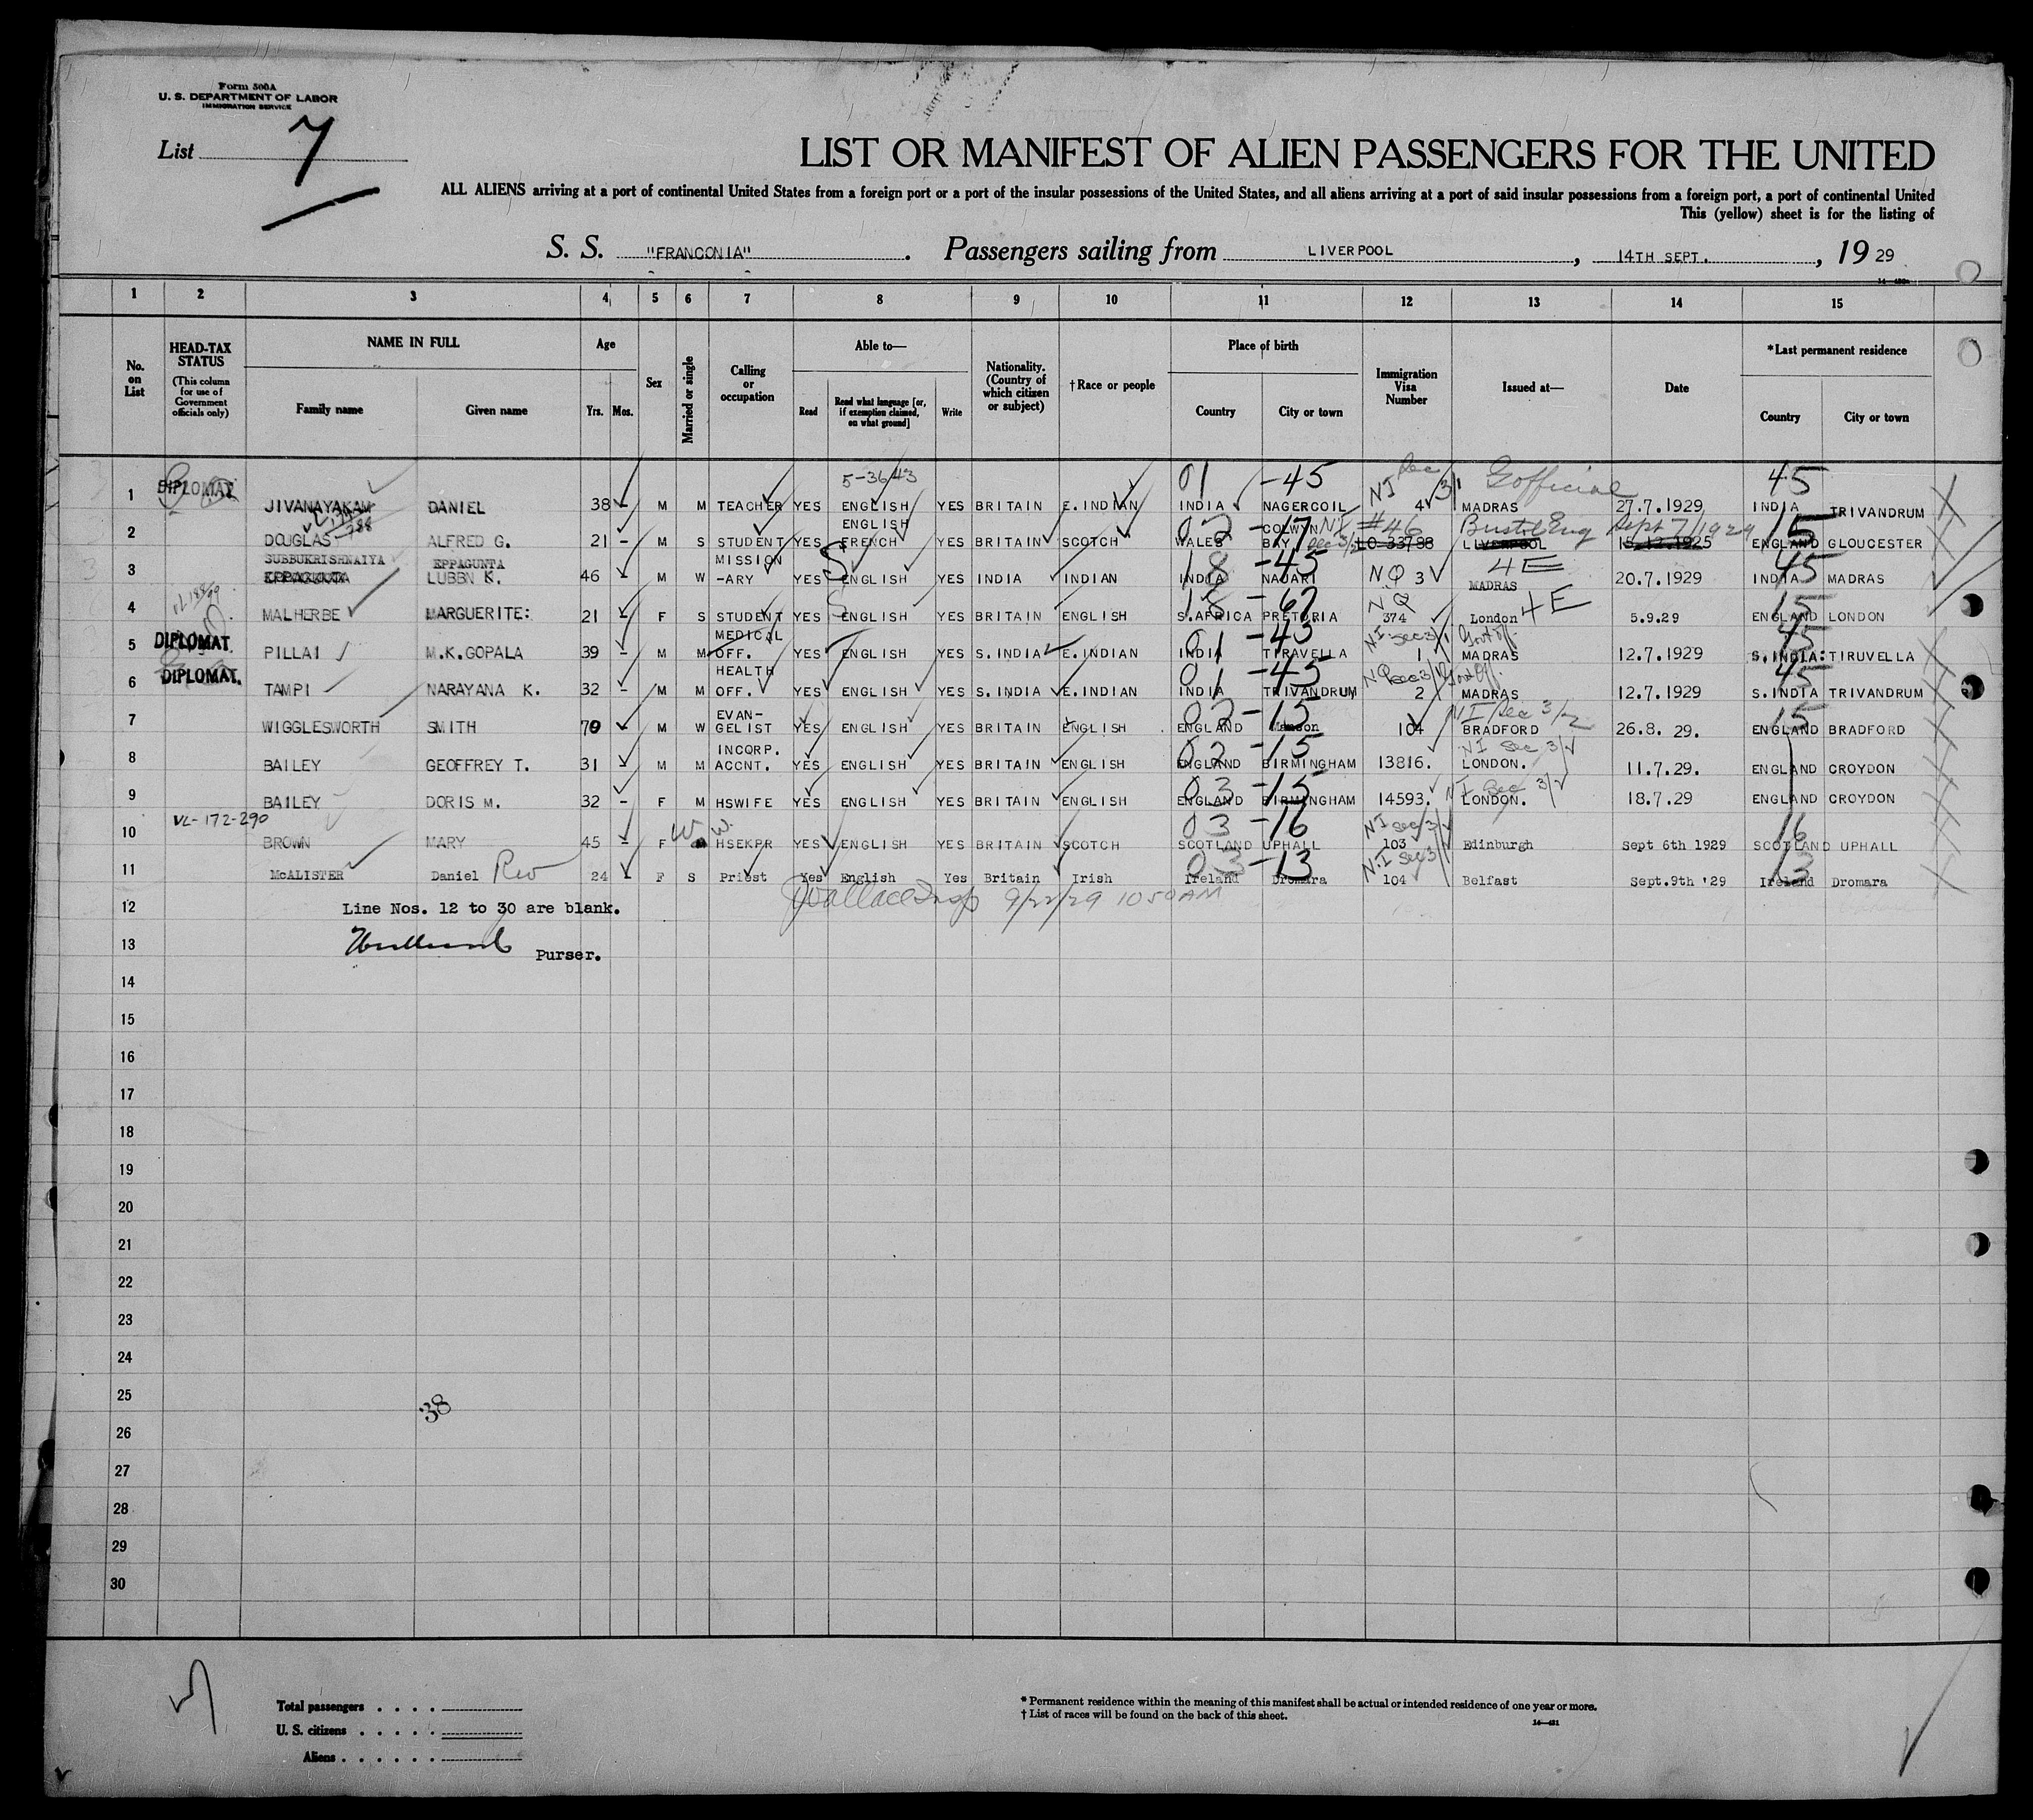 Form 500A
U. S. DEPARTMENT OF LABOR
IMMIGRATION SERVICE
List 7
LIST OR MANIFEST OF ALIEN PASSENGERS FOR THE UNITED
ALL ALIENS arriving at a port of continental United States from a foreign port or a port of the insular possessions of the United States, and all aliens arriving at a port of said insular possessions from a foreign port, a port of continental United
This (yellow) sheet is for the listing of
S. S. "FRANCONIA". Passengers sailing from LIVERPOOL, 14TH SEPT., 19 29
1 2 3 4 5 6 7 8 9 10 11 12 13 14 15
No. on List
HEAD-TAX STATUS
(This column for use of Government officials only)
NAME IN FULL
Family name Given name
Age
Yrs. Mos.
Sex
Married or single
Calling or occupation
Able to—
Read
Read what language [or, if exemption claimed, on what ground]
Write
Nationality. (Country of which citizen or subject)
†Race or people
Place of birth
Country City or town
Immigration Visa Number
Issued at—
Date
*Last permanent residence
Country City or town
5-36/43 01 -45 45
1 DIPLOMAT JIVANAYAKAM DANIEL 38 M M TEACHER YES ENGLISH YES BRITAIN E. INDIAN INDIA NAGERCOIL NI 4 Gofficial MADRAS 27.7.1929 INDIA TRIVANDRUM
ENGLISH 02 -17 COLWYN #46 Bristol Eng Sept 7/1929 15
2 DOUGLAS ALFRED G. 21 - M S STUDENT YES FRENCH YES BRITAIN SCOTCH WALES BAY LO 33788 LIVERPOOL 15.12.1925 ENGLAND GLOUCESTER
SUBBUKRISHNAIYA EPPAGUNTA MISSION 18 -45 4E 45
3 EPPAGUNTA LUBBN K. 46 - M W -ARY YES ENGLISH YES INDIA INDIAN INDIA NAJARI NQ 3 MADRAS 20.7.1929 INDIA MADRAS
18 -67 NQ 4E 15
4 MALHERBE MARGUERITE: 21 - F S STUDENT YES ENGLISH YES BRITAIN ENGLISH S.AFRICA PRETORIA 374 London 5.9.29 ENGLAND LONDON
MEDICAL 01 -45 45
5 DIPLOMAT PILLAI M.K.GOPALA 39 - M M OFF. YES ENGLISH YES S. INDIA E. INDIAN INDIA TIRAVELLA 1 MADRAS 12.7.1929 S.INDIA: TIRUVELLA
HEALTH 01 -45 45
6 DIPLOMAT. TAMPI NARAYANA K. 32 - M M OFF. YES ENGLISH YES S. INDIA E. INDIAN INDIA TRIVANDRUM 2 MADRAS 12.7.1929 S. INDIA TRIVANDRUM
EVAN- 02 -15 15
7 WIGGLESWORTH SMITH 70 M W GELIST YES ENGLISH YES BRITAIN ENGLISH ENGLAND 104 BRADFORD 26.8. 29. ENGLAND BRADFORD
INCORP. 02 -15
8 BAILEY GEOFFREY T. 31 - M M ACCNT. YES ENGLISH YES BRITAIN ENGLISH ENGLAND BIRMINGHAM 13816. LONDON. 11.7.29. ENGLAND CROYDON
03 -15
9 BAILEY DORIS M. 32 - F M HSWIFE YES ENGLISH YES BRITAIN ENGLISH ENGLAND BIRMINGHAM 14593. LONDON. 18.7.29 ENGLAND CROYDON
VL-172-290 W W. 03 -16 16
10 BROWN MARY 45 - F HSEKPR YES ENGLISH YES BRITAIN SCOTCH SCOTLAND UPHALL 103 Edinburgh Sept 6th 1929 SCOTLAND UPHALL
03 -13 13
11 McALISTER Daniel Rev 24 - F S Priest Yes English Yes Britain Irish Ireland Dromara 104 Belfast Sept.9th '29 Ireland Dromara
12 Line Nos. 12 to 30 are blank. 9/22/29 1050AM
13 Purser.
14
15
16
17
18
19
20
21
22
23
24
25
38
26
27
28
29
30
Total passengers . . . .
U. S. citizens . . . . .
Aliens . . . . . .
* Permanent residence within the meaning of this manifest shall be actual or intended residence of one year or more.
† List of races will be found on the back of this sheet.
14—421